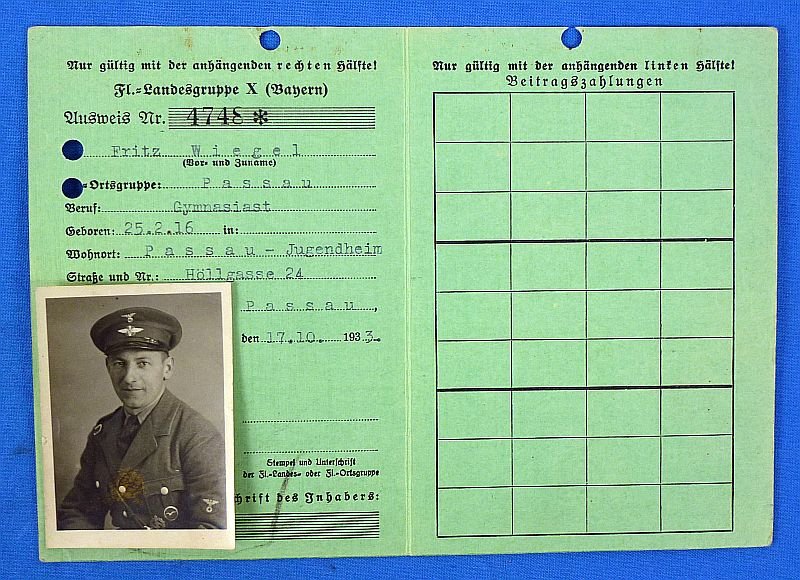 Nur gültig mit der anhängenden rechten Hälfte!
Fl.-Landesgruppe X (Bayern)
Ausweis Nr. 4748 *
Fritz Wiegel
(Vor- und Zuname)
-Ortsgruppe: Passau
Beruf: Gymnasiast
Geboren: 25.2.16 in:
Wohnort: Passau - Jugendheim
Straße und Nr.: Höllgasse 24
Passau,
den 17.10. 1933.
Stempel und Unterschrift
der Fl.-Landes- oder Fl.-Ortsgruppe
chrift des Inhabers:
Nur gültig mit der anhängenden linken Hälfte!
Beitragszahlungen